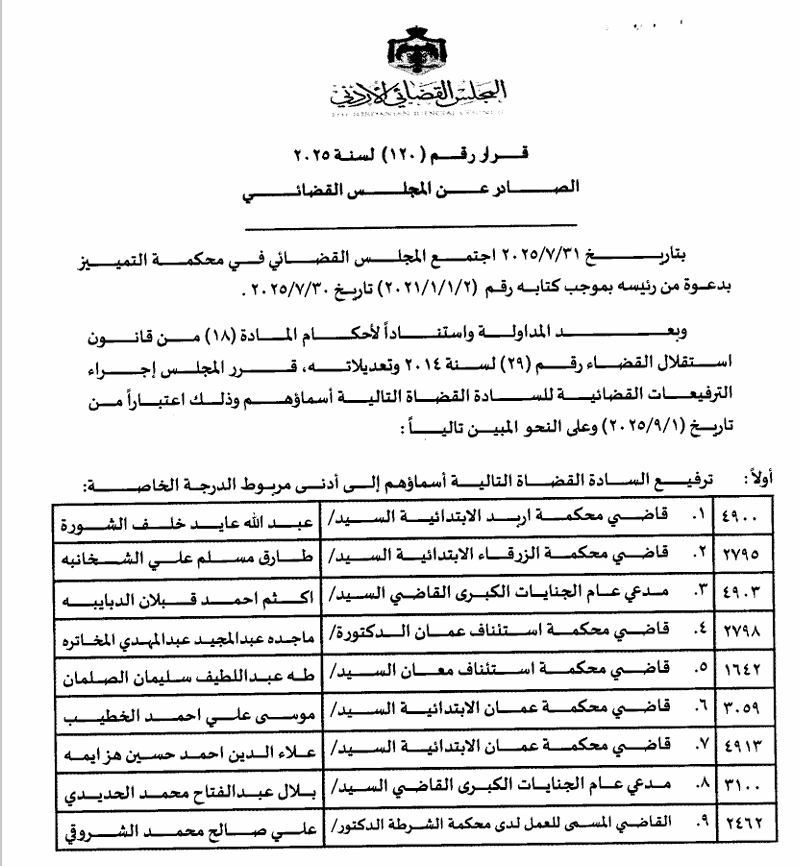 المجلس القضائي الأردني
THE JORDANIAN JUDICIAL COUNCIL
قرار رقم (١٢٠) لسنة ٢٠٢٥
الصادر عن المجلس القضائي
بتاريخ ٢٠٢٥/٧/٣١ اجتمع المجلس القضائي في محكمة التمييز
بدعوة من رئيسه بموجب كتابه رقم (٢٠٢١/١/١/٢) تاريخ ٢٠٢٥/٧/٣٠ .
وبعد المداولة واستناداً لأحكام المادة (١٨) من قانون
استقلال القضاء رقم (٢٩) لسنة ٢٠١٤ وتعديلاته، قرر المجلس إجراء
الترفيعات القضائية للسادة القضاة التالية أسماؤهم وذلك اعتباراً من
تاريخ (٢٠٢٥/٩/١) وعلى النحو المبين تالياً:
أولاً: ترفيع السادة القضاة التالية أسماؤهم إلى أدنى مربوط الدرجة الخاصة:
٤٩٠٠ ١. قاضي محكمة اربد الابتدائية السيد/ عبد الله عايد خلف الشورة
٢٧٩٥ ٢. قاضي محكمة الزرقاء الابتدائية السيد/ طارق مسلم علي الشخانبه
٤٩٠٣ ٣. مدعي عام الجنايات الكبرى القاضي السيد/ اكثم احمد قبلان الدبايبه
٢٧٩٨ ٤. قاضي محكمة استئناف عمان الدكتورة/ ماجده عبدالمجيد عبدالمهدي المخاتره
١٦٤٢ ٥. قاضي محكمة استئناف معان السيد/ طه عبداللطيف سليمان الصلمان
٣٠٥٩ ٦. قاضي محكمة عمان الابتدائية السيد/ موسى علي احمد الخطيب
٤٩١٣ ٧. قاضي محكمة عمان الابتدائية السيد/ علاء الدين احمد حسين هزايمه
٣١٠٠ ٨. مدعي عام الجنايات الكبرى القاضي السيد/ بلال عبدالفتاح محمد الحديدي
٢٤٦٢ ٩. القاضي المسمى للعمل لدى محكمة الشرطة الدكتور/ علي صالح محمد الشروقي